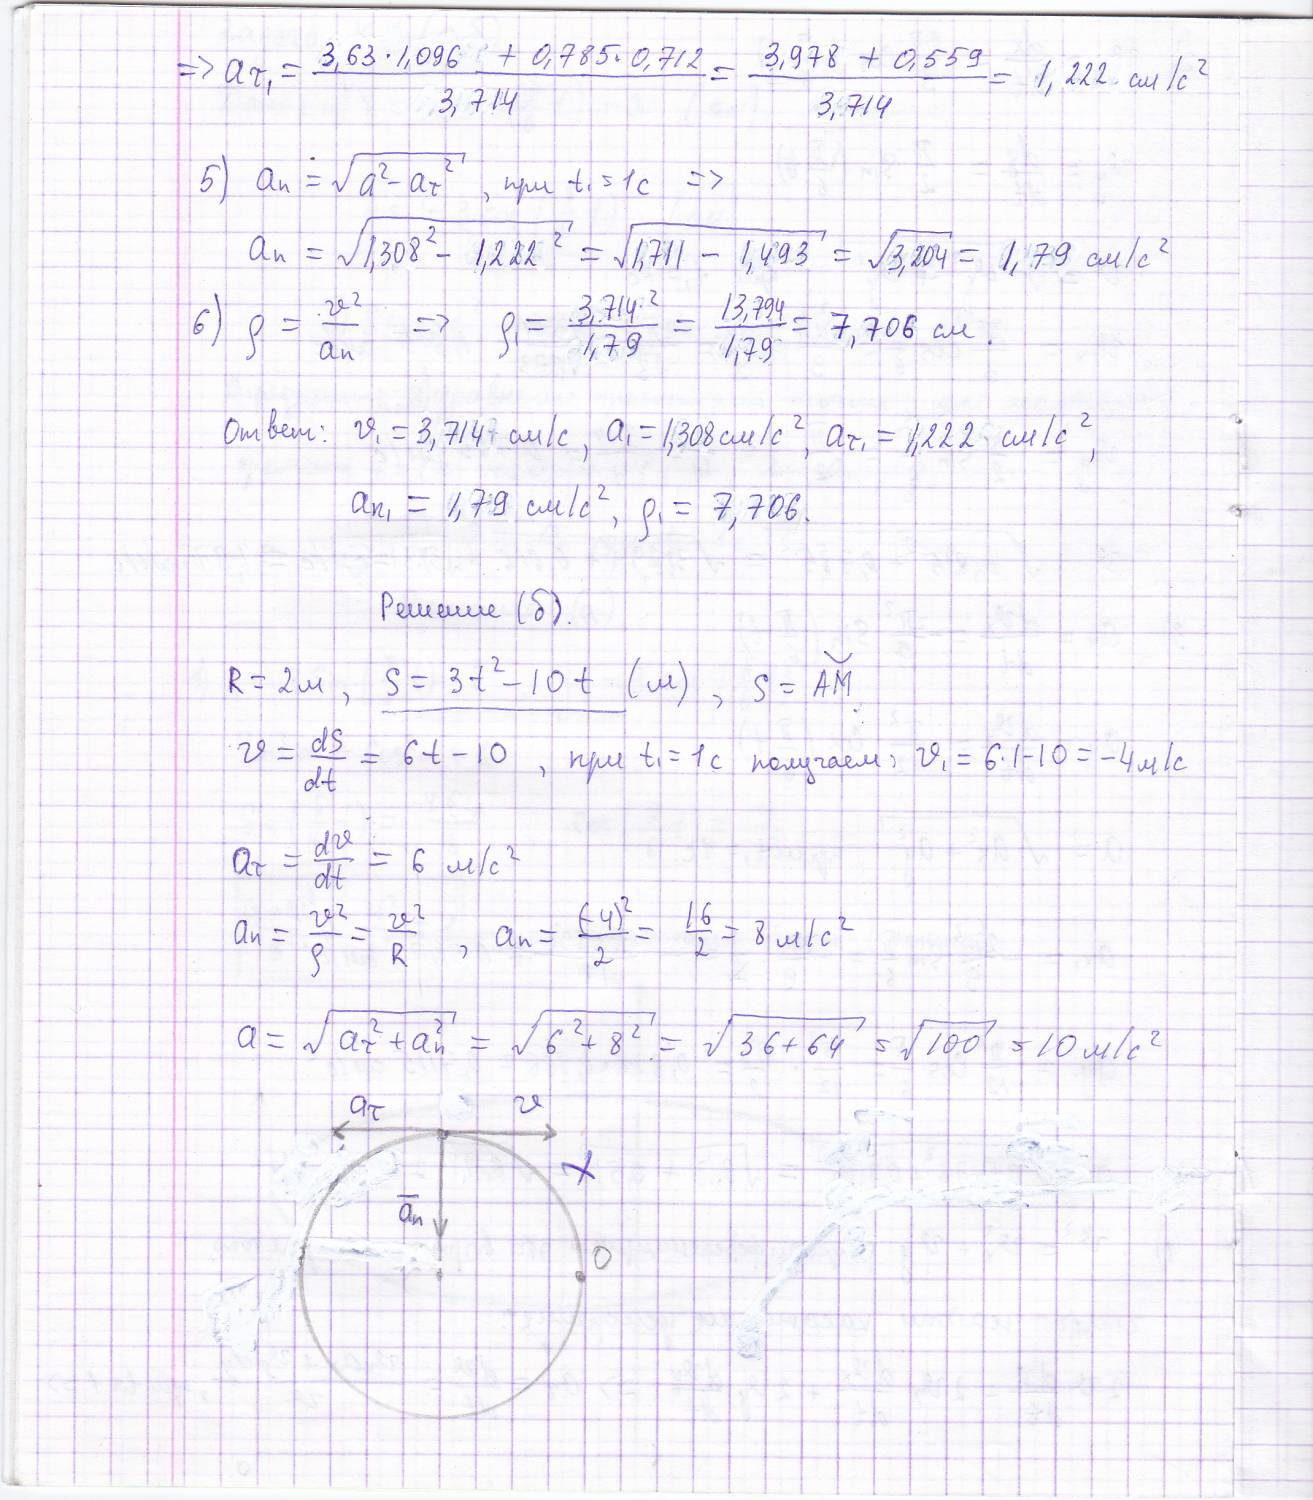 => aτ₁ = (3,63·1,096 + 0,785·0,712)/3,714 = (3,978 + 0,559)/3,714 = 1,222 см/с²
5) an = √(a² - aτ²), при t₁ = 1с =>
an = √(1,308² - 1,222²) = √(1,711 - 1,493) = √3,204 = 1,79 см/с²
6) ρ = v²/an => ρ₁ = 3,714²/1,79 = 13,794/1,79 = 7,706 см.
Ответ: v₁ = 3,714 см/с, a₁ = 1,308 см/с², aτ₁ = 1,222 см/с²,
an₁ = 1,79 см/с², ρ₁ = 7,706.
Решение (б).
R = 2м, S = 3t² - 10t (м), S = AM.
v = dS/dt = 6t - 10, при t₁ = 1с получаем: v₁ = 6·1-10 = -4м/с
aτ = dv/dt = 6 м/с²
an = v²/ρ = v²/R, an = (-4)²/2 = 16/2 = 8 м/с²
a = √(aτ² + an²) = √(6² + 8²) = √(36+64) = √100 = 10 м/с²
aτ v
an
O